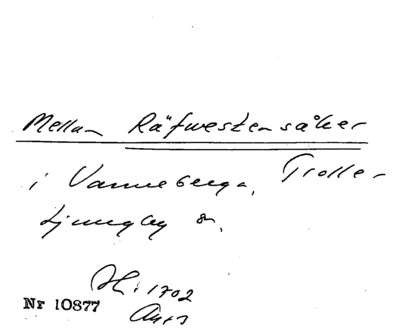 Mellan Räfwestensåker
i Vanneberga, Trolle-
Ljungby sn.
H: 1702
Nr 10877